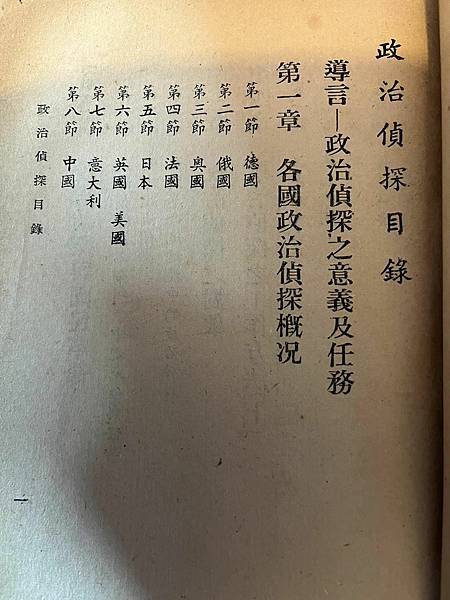 政治偵探目錄
導言—政治偵探之意義及任務
第一章 各國政治偵探概况
第一節 德國
第二節 俄國
第三節 奧國
第四節 法國
第五節 日本
第六節 英國 美國
第七節 意大利
第八節 中國
政治偵探目錄
一